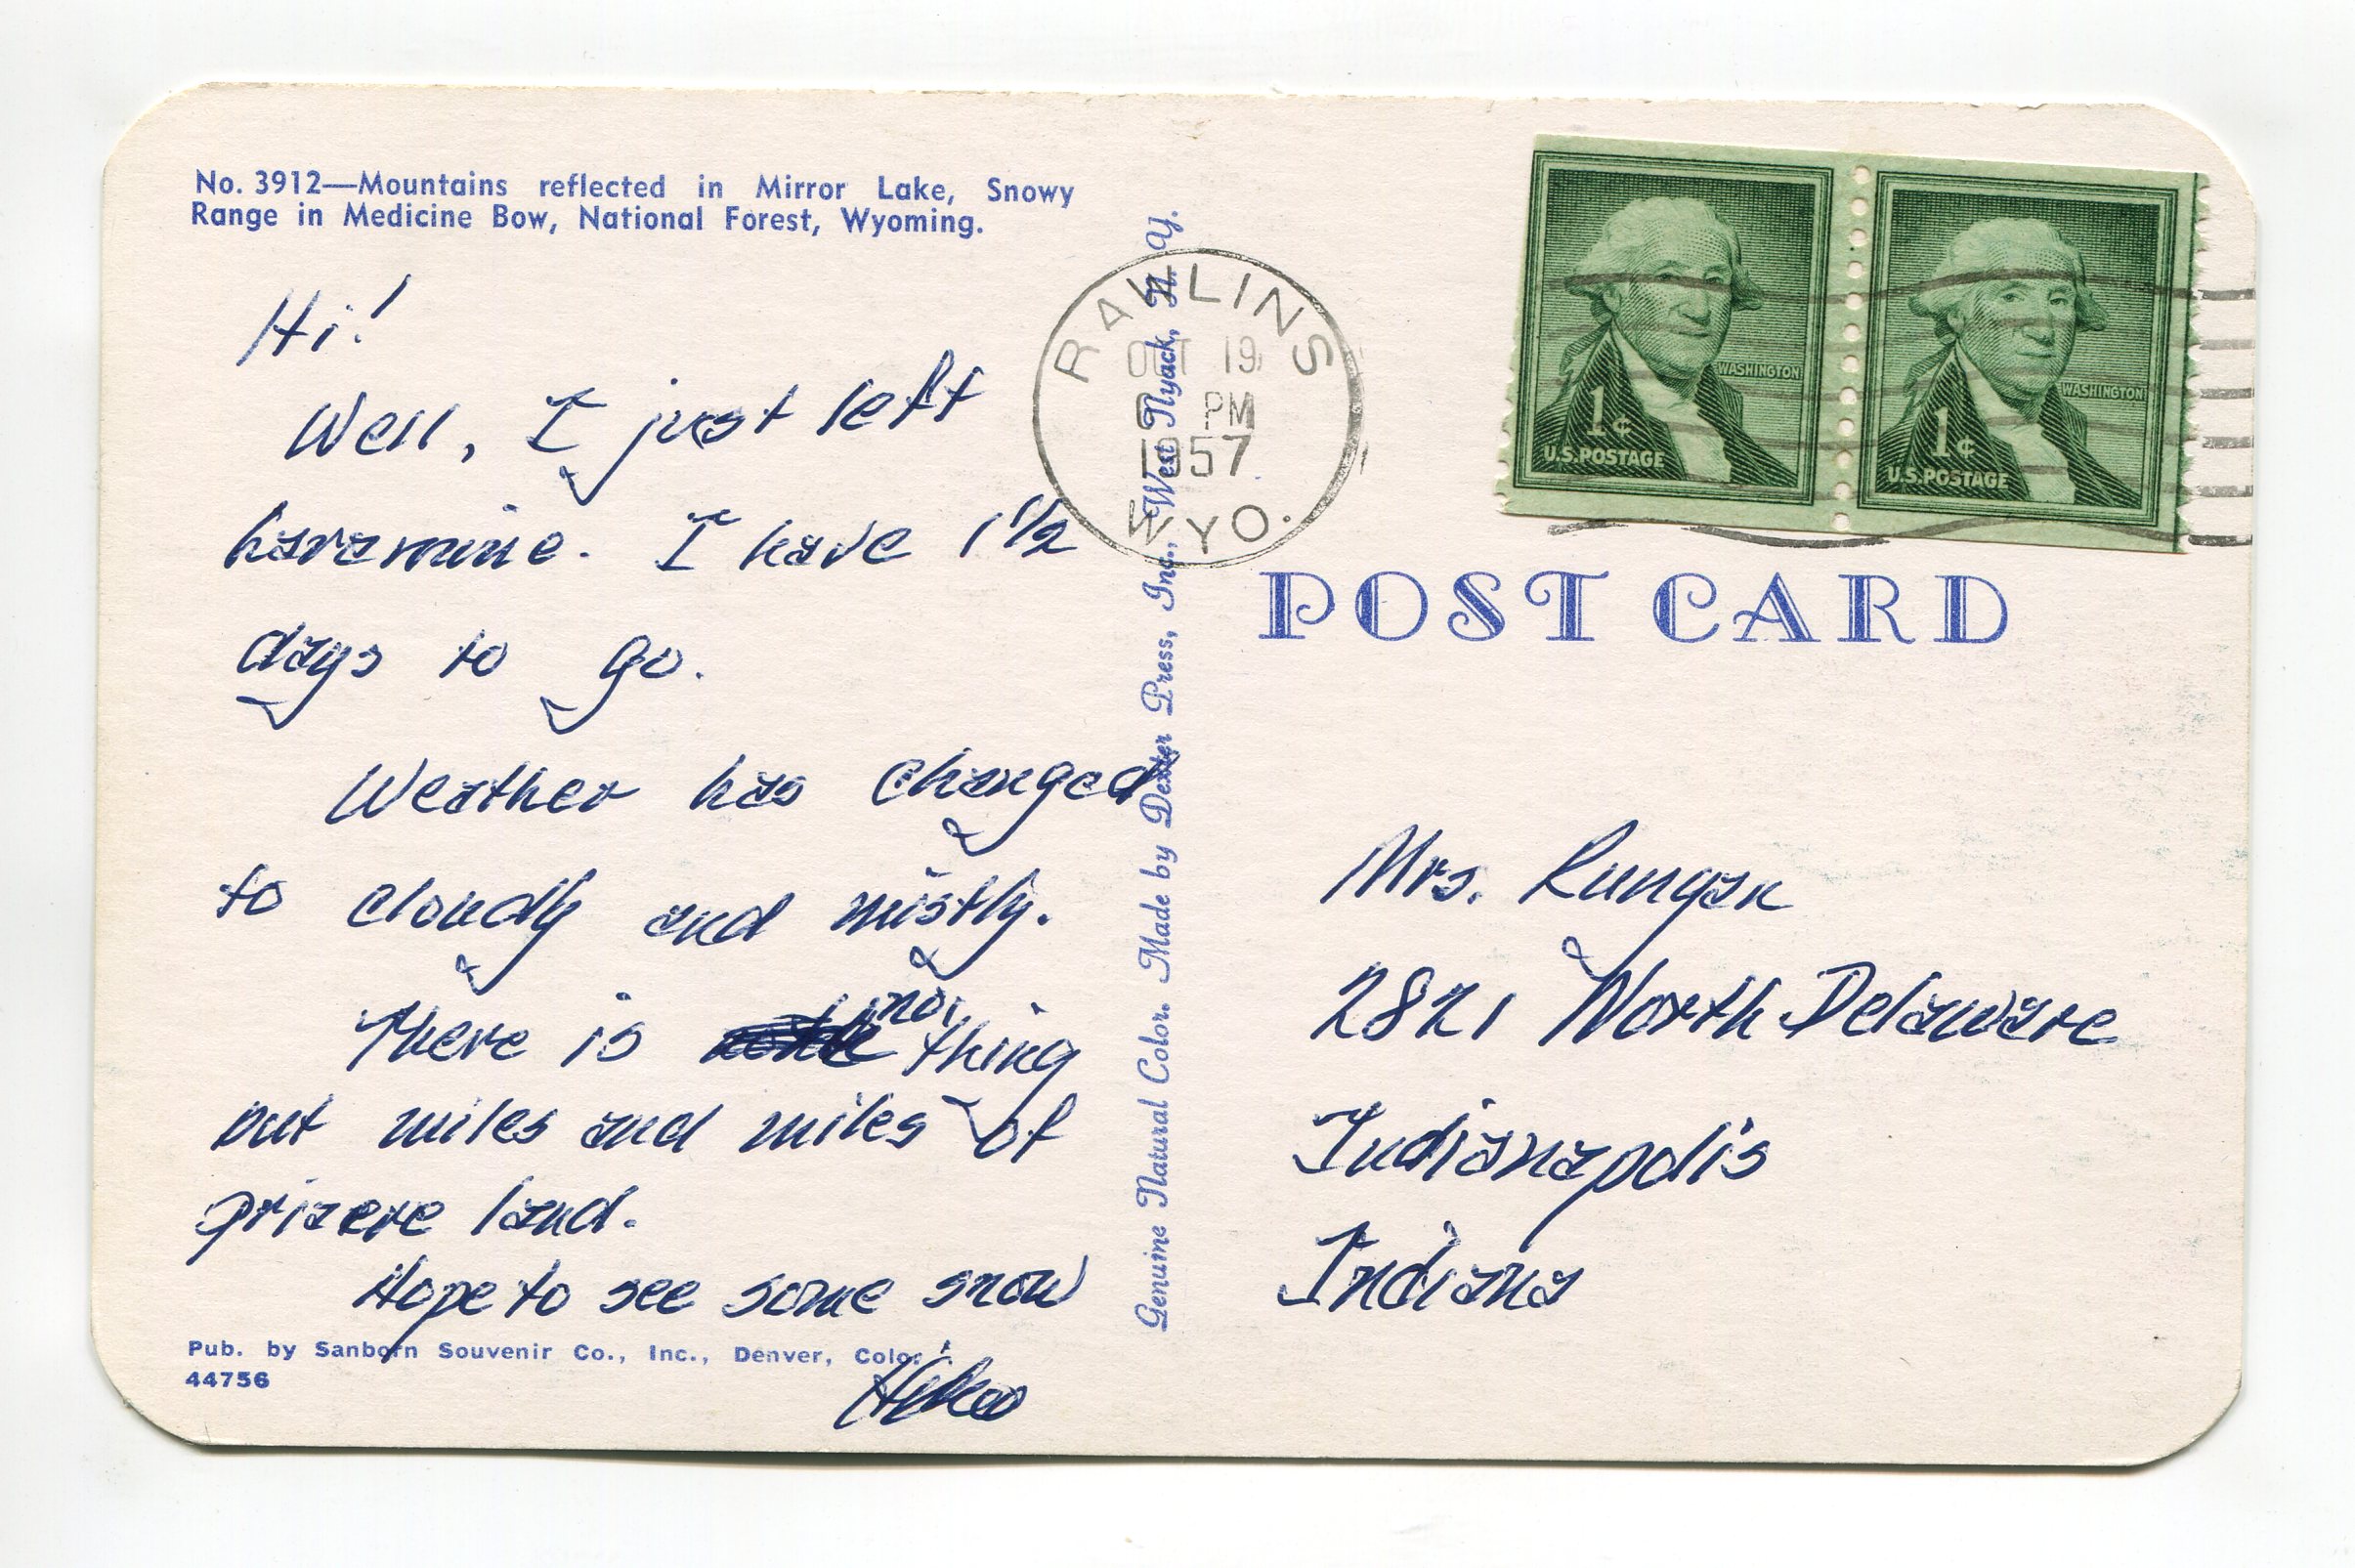 No. 3912—Mountains reflected in Mirror Lake, Snowy
Range in Medicine Bow, National Forest, Wyoming.
Hi!
Well, I just left
haramine. I have 1 1/2
days to go.
Weather has changed
to cloudly and mistly.
There is no thing
but miles and miles of
prizere land.
Hope to see some snow
Pub. by Sanborn Souvenir Co., Inc., Denver, Colo.
44756
Genuine Natural Color. Made by Dexter Press, Inc., West Nyack, N. Y.
RAWLINS
OCT 19
PM
1957
WYO.
WASHINGTON
1¢
U.S.POSTAGE
WASHINGTON
1¢
U.S.POSTAGE
POST CARD
Mrs. Rungan
2821 North Delaware
Indianapolis
Indiana